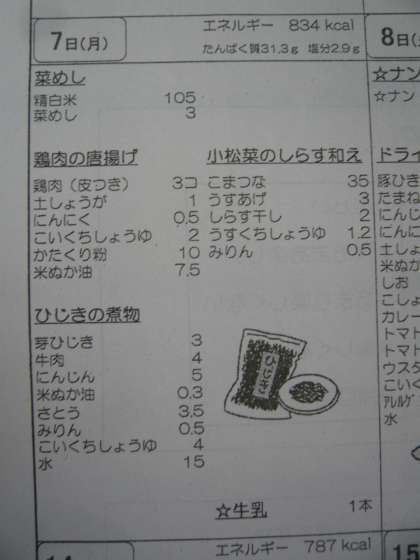 7日(月)
エネルギー 834 kcal
たんぱく質31.3g 塩分2.9g
菜めし
精白米 105
菜めし 3
鶏肉の唐揚げ
鶏肉(皮つき) 3コ
土しょうが 1
にんにく 0.5
こいくちしょうゆ 2
かたくり粉 10
米ぬか油 7.5
小松菜のしらす和え
こまつな 35
うすあげ 3
しらす干し 2
うすくちしょうゆ 1.2
みりん 0.5
ひじきの煮物
芽ひじき 3
牛肉 4
にんじん 5
米ぬか油 0.3
さとう 3.5
みりん 0.5
こいくちしょうゆ 4
水 15
ひじき
☆牛乳 1本
8日
☆ナン
☆ナン
ドライ
豚ひき
たまね
にんじ
にんに
土しょ
米ぬか
しお
こしょ
カレー
トマト
トマト
ウスタ
こいく
ｱﾚﾙｹﾞ
水
エネルギー 787 kcal
14
15